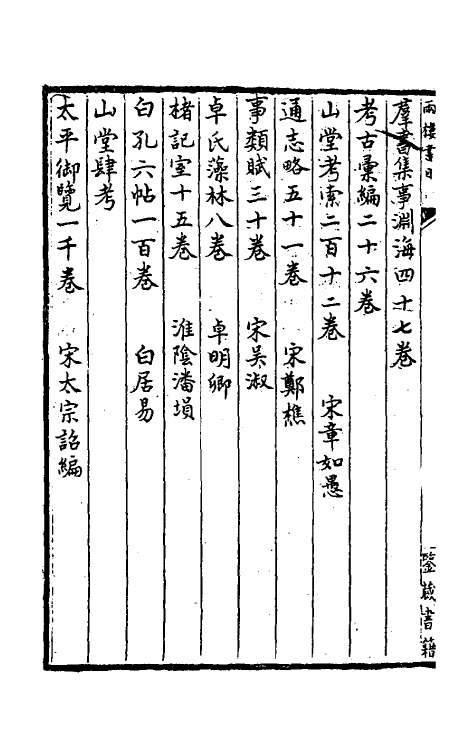 兩樓書目
羣書集事淵海四十七卷
考古彙編二十六卷
山堂考索二百十二卷　宋章如愚
通志略五十一卷　宋鄭樵
事類賦三十卷　宋吳淑
卓氏藻林八卷　卓明卿
楮記室十五卷　淮陰潘塤
白孔六帖一百卷　白居易
山堂肆考
太平御覽一千卷　宋太宗詔編
鑒藏書籍